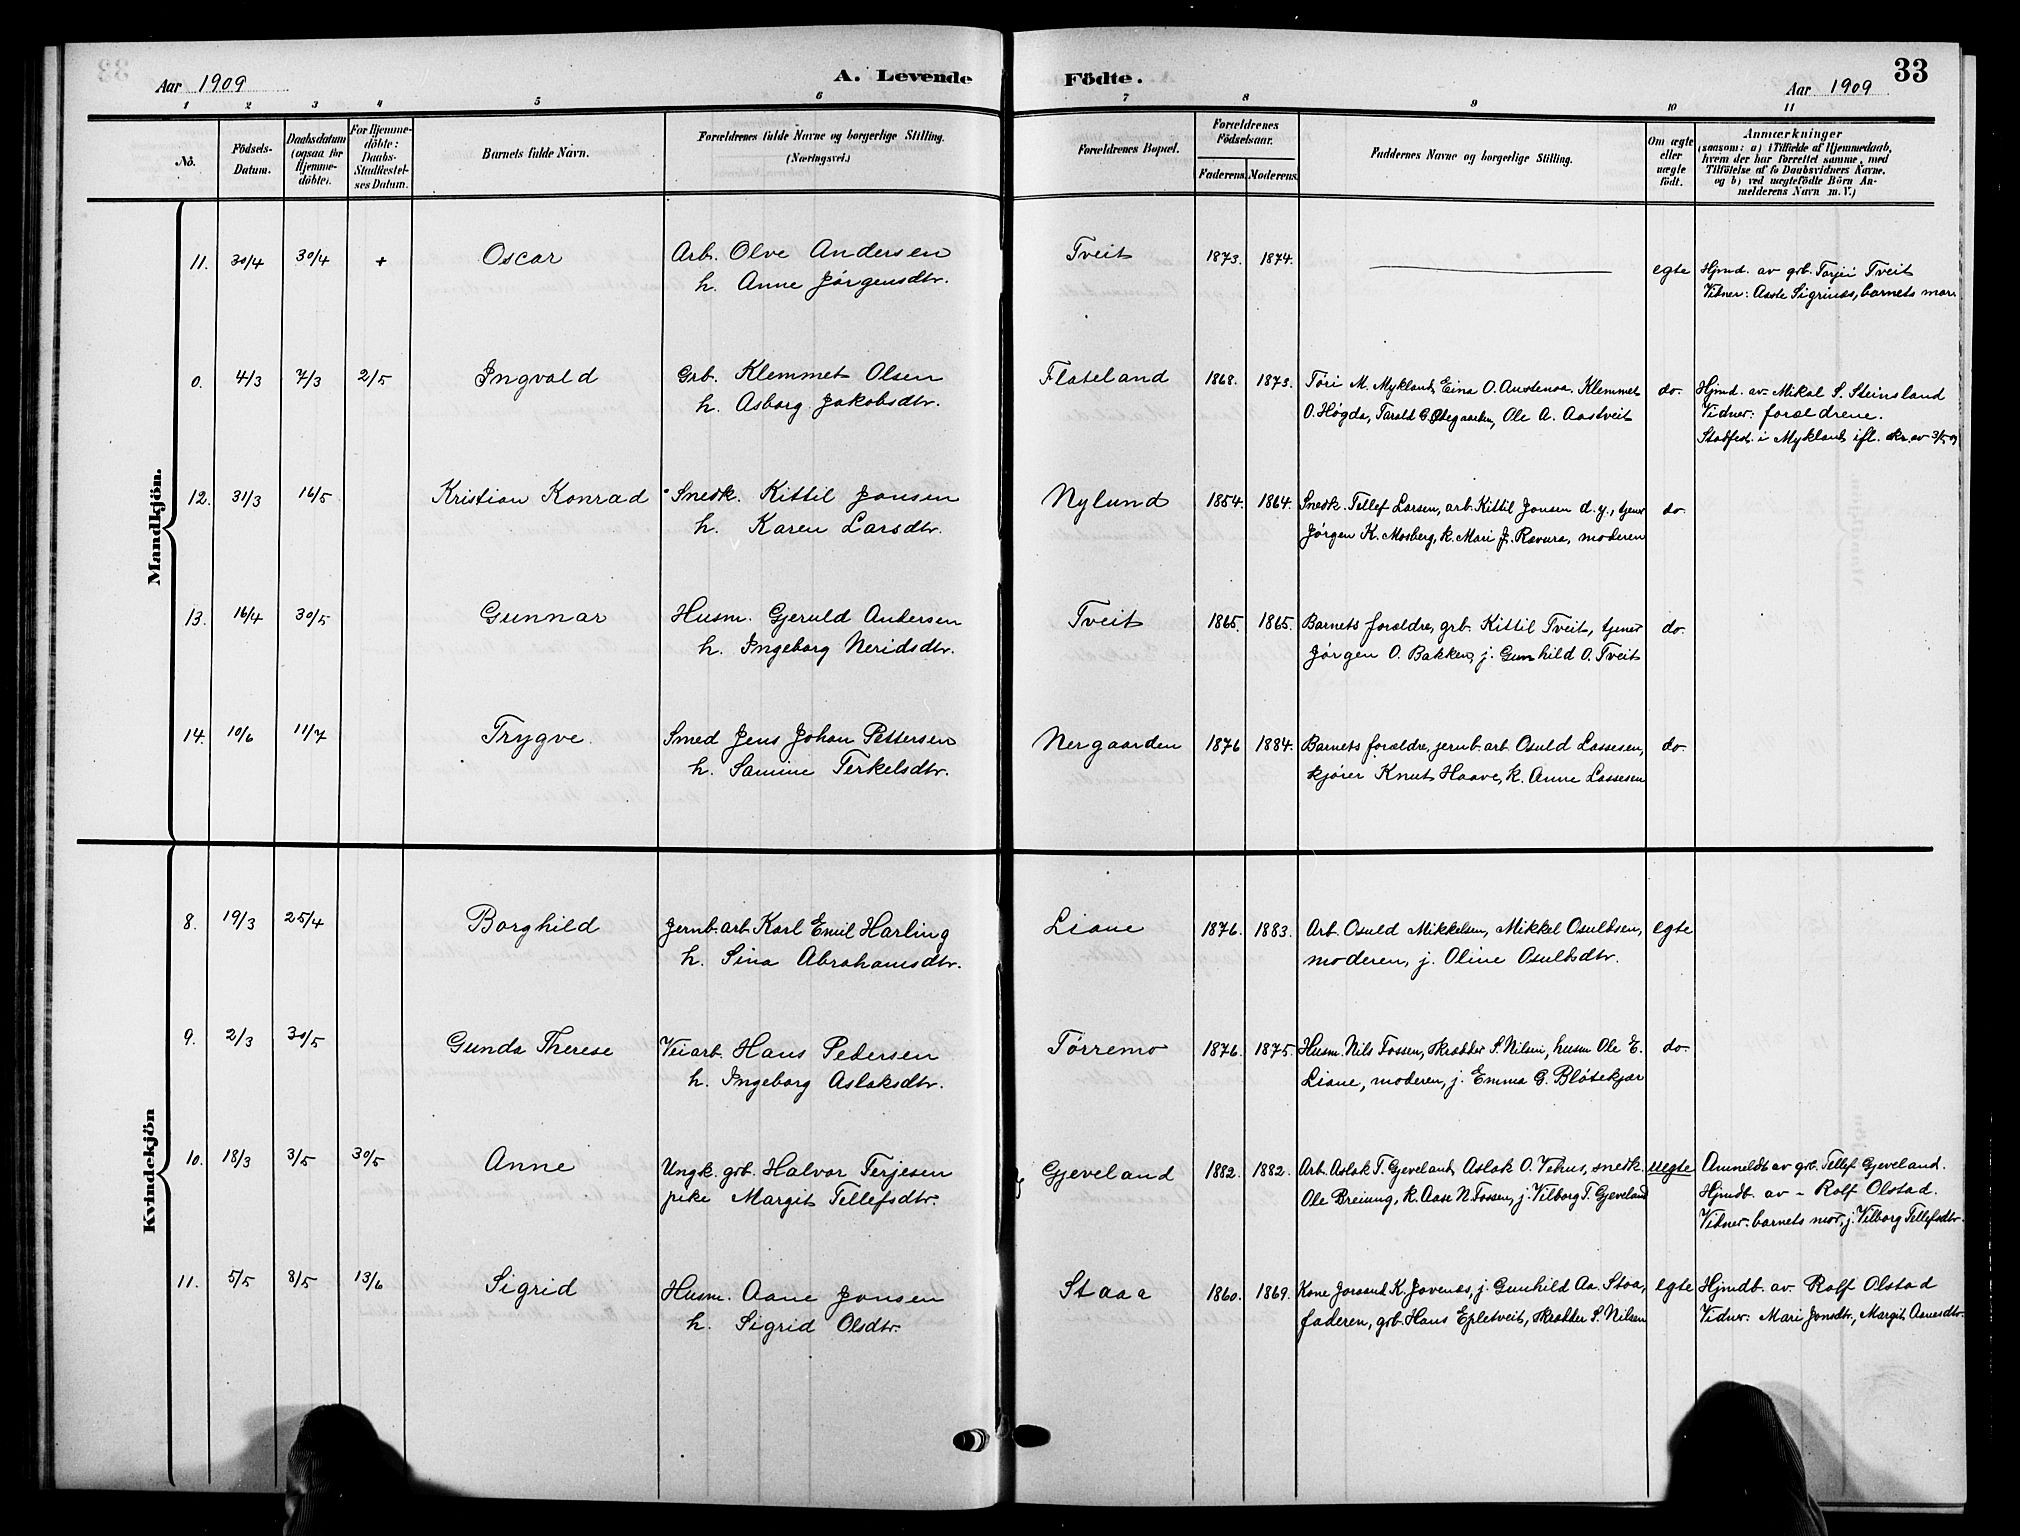 33
Aar 1909
A. Levende Födte.
Aar 1909
1 2 3 4 5 6 7 8 9 10 11
No.
Födsels-
Datum.
Daabsdatum
(ogsaa for
Hjemme-
döbte).
For Hjemme-
döbte:
Daabs-
Stadfestel-
ses Datum.
Barnets fulde Navn.
Forældrenes fulde Navne og borgerlige Stilling.
(Næringsvei.)
Forældrenes Bopæl.
Forældrenes
Födselsaar.
Faderens. Moderens.
Faddernes Navne og borgerlige Stilling.
Om ægte
eller
uægte
födt.
Anmærkninger
(saasom: a) i Tilfælde af Hjemmedaab,
hvem der har forrettet samme, med
Tilföielse af to Daabsvidners Navne,
og b) ved uægtefödte Börn An-
melderens Navn m. V.)
Mandkjön.
11. 30/4 30/4 + Oscar Arb. Olve Andersen Tveit 1873. 1874. egte Hjmd. av grb. Torjei Tveit
h. Anne Jørgensdtr. Vidner: Aaste Sigrinæs, barnets mor.
0. 4/3 7/3 2/5 Ingvald Grb. Klemmet Olsen Flateland 1868. 1873. Tøri M. Mykland, Eina O. Austenaa, Klemmet do. Hjmd. av Mikal S. Steinsland
h. Asborg Jakobsdtr. O. Høgda, Tarald G. Ødegaarden, Ole A. Aastveit Vidner: forældrene.
Stadfest. i Mykland ifl. skr. av 3/5 09
12. 31/3 16/5 Kristian Konrad Snedk. Kittil Jonsen Nylund 1854. 1864. Snedk. Tellef Larsen, arb. Kittil Jonsen d. y., tjener do.
h. Karen Larsdtr. Jørgen K. Mosberg, k. Mari J. Rævura, moderen
13. 16/4 30/5 Gunnar Husm. Gjeruld Andersen Tveit 1865. 1865. Barnets forældre, grb. Kittil Tveit, tjener do.
h. Ingeborg Neridsdtr. Jørgen O. Bakken, j. Gunhild O. Tveit
14. 10/6 11/7 Trygve. Smed Jens Johan Pettersen Nergaarden 1876 1884. Barnets forældre, jernb. arb. Osuld Lassesen, do.
h. Samine Terkelsdtr. kjører Knut Haave, k. Anne Lassesen
Kvindekjön
8. 19/3 25/4 Borghild Jernb. arb. Karl Emil Harling Liane 1876. 1883. Arb. Osuld Mikkelsen, Mikkel Osuldsen, egte
h. Sina Abrahamsdtr. moderen, j. Oline Osuldsdtr.
9. 2/3 30/5 Gunda Therese Veiarb. Hans Pedersen Tørremo 1876. 1875. Husm. Nils Fossen, skrædder S. Nilsen, husm Ole E. do.
h. Ingeborg Aslaksdtr. Liane, moderen, j. Emma G. Bløtekjær
10. 18/3 3/5 30/5 Anne Ungk. grb. Halvor Terjesen Gjeveland 1882. 1882. Arb. Aslak T. Gjeveland, Aslak O. Vehus, snedk. uegte Anmeldt av grb. Tellef Gjeveland.
pike Margit Tellefsdtr. Ole Breiung, k. Aase N. Fossen, j. Vilborg T. Gjeveland Hjmdb. av - Rolf Olstad.
Vidner: barnets mor, j. Vilborg Tellefsdtr.
11. 5/5 8/5 13/6 Sigrid Husm. Aane Jonsen Staaa 1860. 1869. Kone Joraand K. Jovenæs, j. Gunhild Aa. Staa, egte Hjmdb. av Rolf Olstad
h. Sigrid Olsdtr. faderen, grb. Hans Epletveit, skrædder S. Nilsen Vidner: Mari Jonsdtr., Margit Aanesdtr.